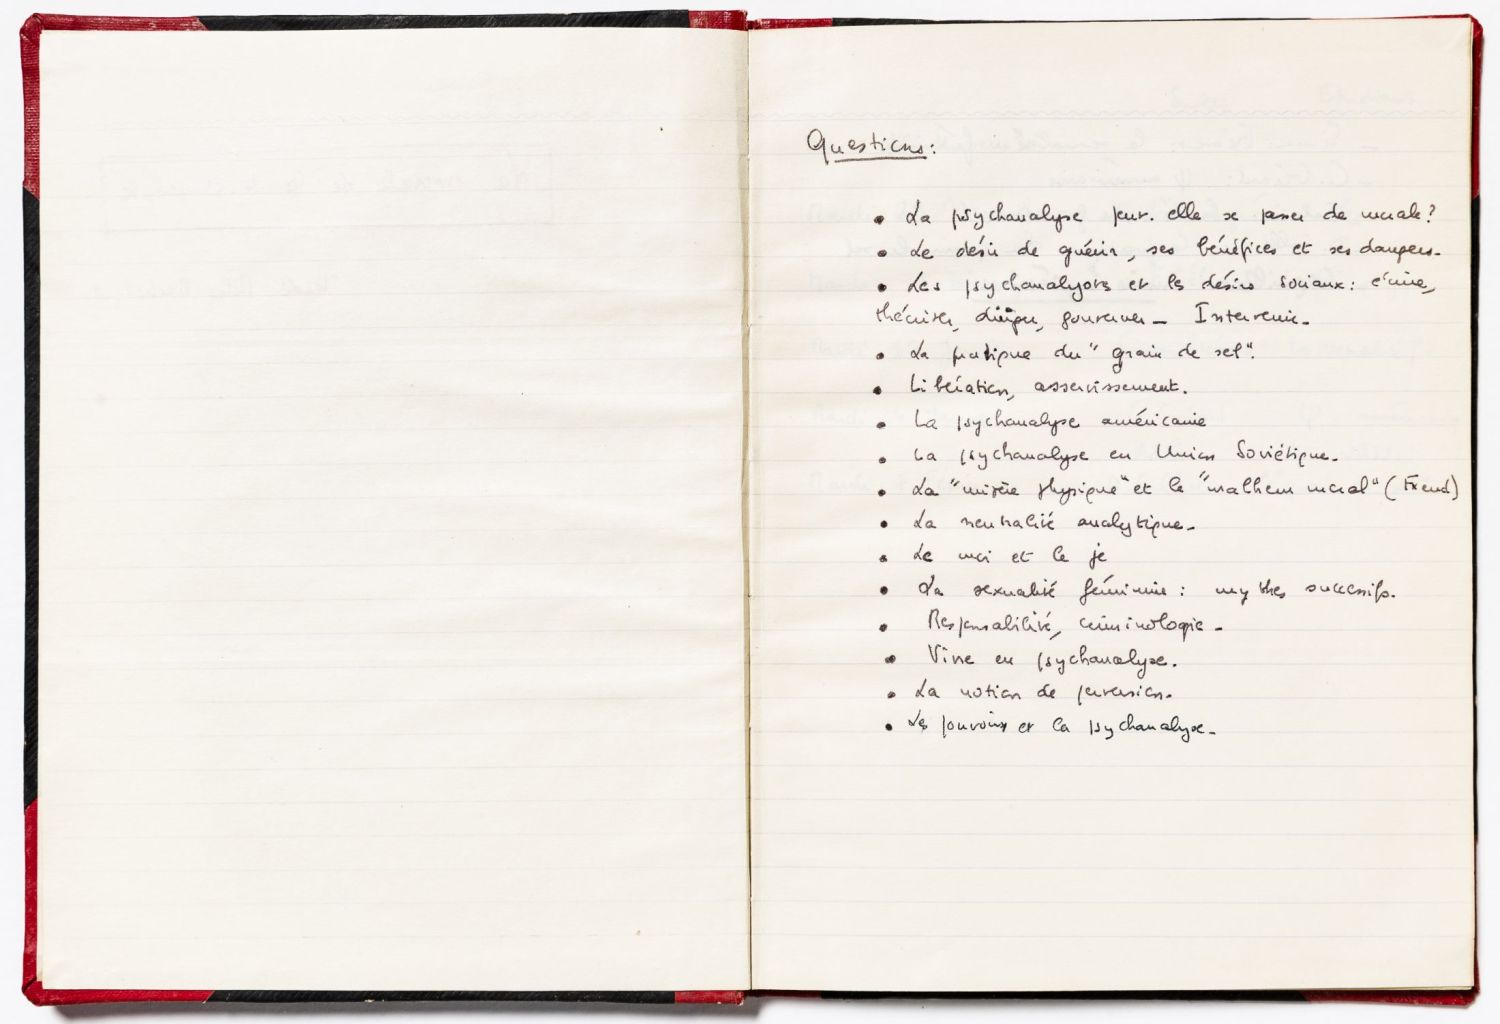 Questions:
• La psychanalyse peut-elle se passer de morale?
• Le désir de guérir, ses bénéfices et ses dangers.
• Les psychanalystes et les désirs sociaux: écrire,
théoriser, diriger, gouverner _ Intervenir.
• La pratique du "grain de sel".
• Libération, asservissement.
• La psychanalyse américaine
• La psychanalyse en Union Soviétique.
• La "misère physique" et le "malheur moral" (Freud)
• La neutralité analytique.
• Le moi et le je
• La sexualité féminine: mythes successifs.
• Responsabilité, criminologie.
• Vivre en psychanalyse.
• La notion de perversion.
• Les pouvoirs et la psychanalyse.